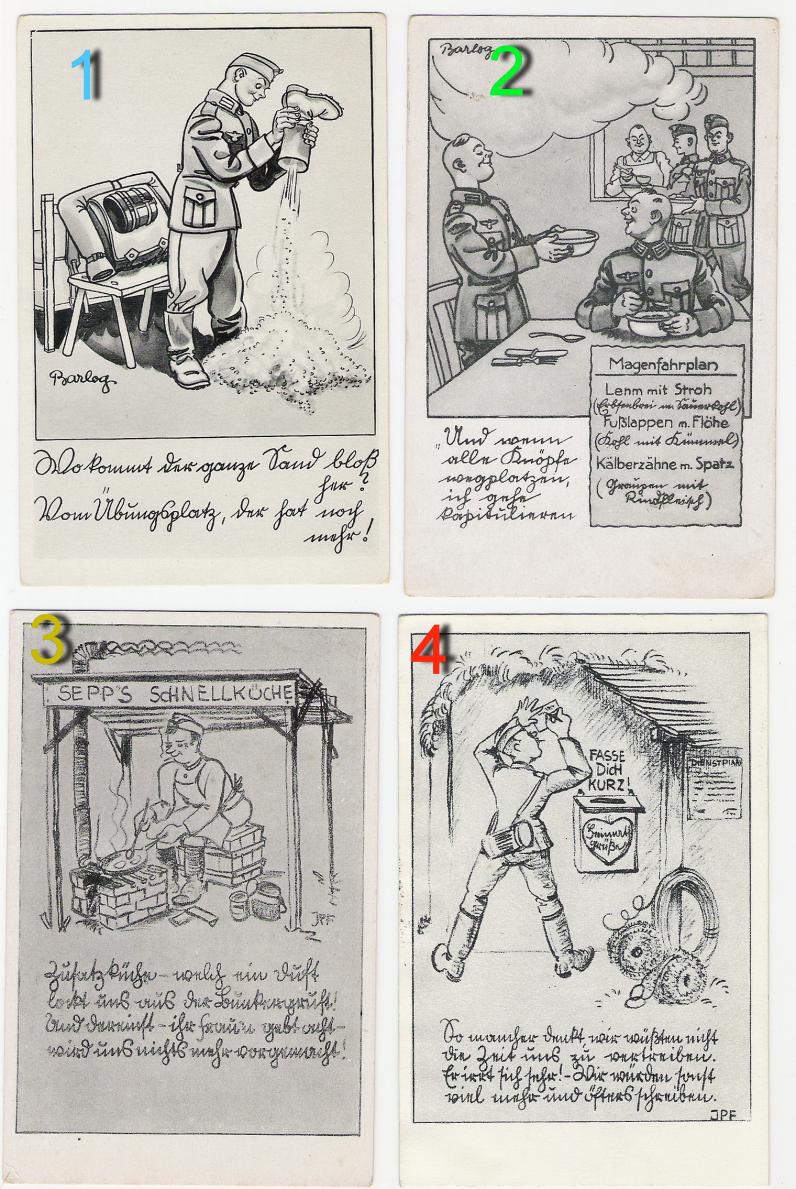 1
Barlog
Wo kommt der ganze Sand bloß
her?
Vom Übungsplatz, der hat noch
mehr!
2
Barlog
Magenfahrplan
Lehm mit Stroh
(Erbsenbrei m. Sauerkohl)
Fußlappen m. Flöhe
(Kohl mit Kümmel)
Kälberzähne m. Spatz
(Graupen mit
Rindfleisch)
„Und wenn
alle Knöpfe
wegplatzen,
ich gehe
kapitulieren
3
SEPP'S SCHNELLKÜCHE
JPF
Zusatzküche – welch ein Duft
lockt uns aus der Bunkergruft!
Und dereinst – ihr Frau'n gebt acht –
wird uns nichts mehr vorgemacht!
4
FASSE
DICH
KURZ!
DIENSTPLAN
Heimat
grüße
So mancher denkt, wir wüßten nicht
die Zeit uns zu vertreiben.
Er irrt sich sehr! – Wir würden sonst
viel mehr und öfters schreiben.
JPF